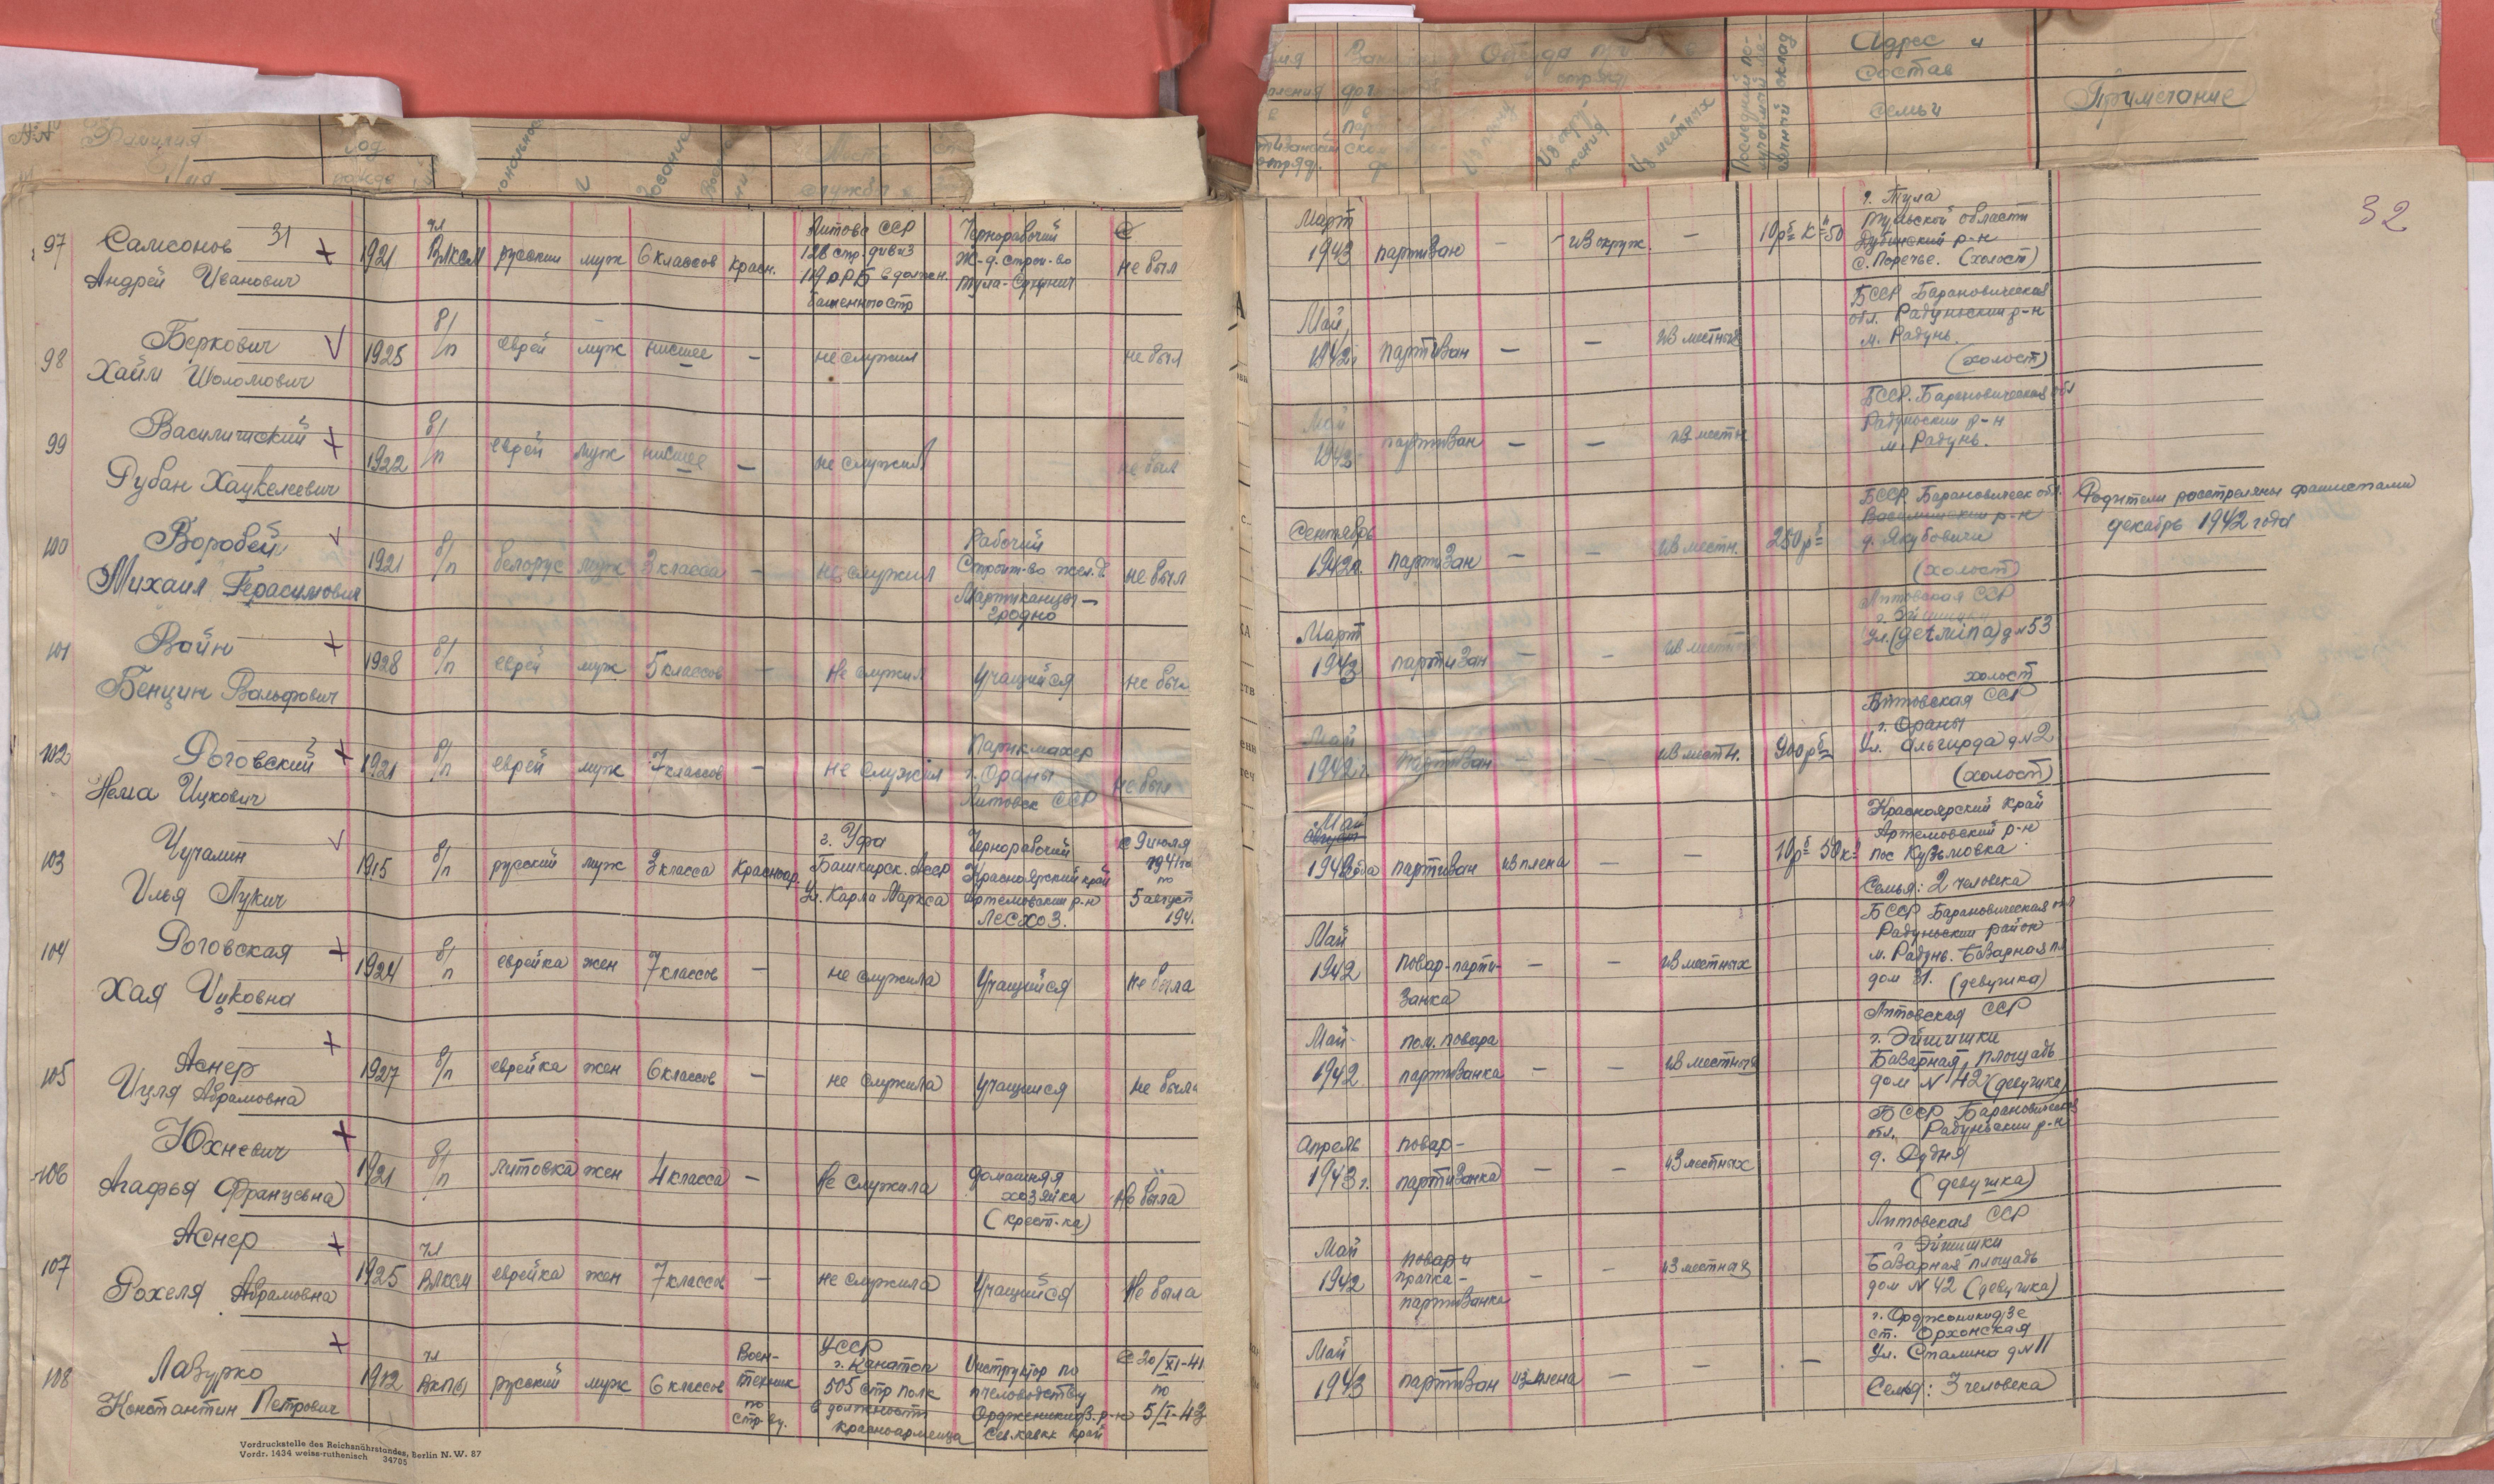 №№ Фамилия
Имя
Год
рожде
Место
службы
Адрес и
состав
семьи
Примечание
Из местных
32
97 Самсонов 31 +
Андрей Иванович
1921
чл
ВЛКСМ
русский
муж
6 классов
красн.
Литова ССР
128 стр. дивиз
119 ОРБ в должн.
Чернорабочий
Ж-д. строи-во
Тула-Сухинич
не был
Март
1943
партизан
—
из окруж.
—
10 рб к 50
г. Тула
Тульской области
Дубинский р-н
с. Поречье. (холост)
98 Беркович V
Хаим Шоломович
1925
б/п
еврей
муж
нисшее
—
не служил
не был
Май
1942г
партизан
—
—
из местных
БССР Барановическая
обл. Радуньский р-н
м. Радунь.
(холост)
99 Василишский +
Рубан Хацкелевич
1922
б/п
еврей
муж
нисшее
—
не служил
не был
Май
1942
партизан
—
—
из местн
БССР. Барановическая обл
Радуньский р-н
м. Радунь.
100 Воробей V
Михаил Герасимович
1921
б/п
белорус
муж
3 класса
—
не служил
Рабочий
Строит-во жел. д
Мартиканцы —
Гродно
не был
Сентябрь
1942г.
партизан
—
—
из местн.
250 рб
БССР. Барановическ обл.
Василишский р-н
д. Якубовичи
(холост)
Родители расстреляны фашистами
декабрь 1942 года
101 Войн +
Бенцин Вольфович
1928
б/п
еврей
муж
5 классов
—
Не служил
Учащийся
не был
Март
1943
партизан
—
—
из местн
Литовская ССР
г. Эйшишки
ул. (Getmina) д №53
холост
102 Роговский +
Нема Ицкович
1921
б/п
еврей
муж
7 классов
—
не служил
Парикмахер
г. Ораны
Литовск ССР
не был
Май
1942 г.
партизан
—
—
из местн.
900 рб
Литовская ССР
г. Ораны
Ул. Ольгирда д №2
(холост)
103 Чучалин V
Илья Лукич
1915
б/п
русский
муж
3 класса
Красноар.
г. Уфа
Башкирск. Асср
Ул. Карла Маркса
Чернорабочий
Красноярский край
Артемовский р-н
Лесхоз.
с 9 июля
1941 го
по
5 август
194.
Май
1942 года
партизан
из плена
—
—
10 рб 50 к
Красноярский край
Артемовский р-н
пос Кузьмовка
Семья: 2 человека
104 Роговская +
Хая Ицковна
1924
б/п
еврейка
жен
7 классов
—
не служила
Учащийся
не была
Май
1942
повар-парти-
занка
—
—
из местных
БССР Барановическая обл
Радуньский район
м. Радунь. Базарная пл
дом 31. (девушка)
105 Аснер +
Ицля Абрамовна
1927
б/п
еврейка
жен
6 классов
—
не служила
учащийся
не была
Май
1942
пом. повара
партизанка
—
—
из местных
Литовская ССР
г. Эйшишки
Базарная площадь
дом № 42 (девушка)
106 Юхневич +
Агафья Францевна
1921
б/п
литовка
жен
4 класса
—
Не служила
домашняя
хозяйка
(крест-ка)
Не была
Апрель
1943 г.
повар-
партизанка
—
—
из местных
БССР Барановическая
обл. Радуньский р-н
д. Дудня
(девушка)
107 Аснер +
Рохеля Абрамовна
1925
чл
ВЛКСМ
еврейка
жен
7 классов
—
не служила
Учащийся
Не была
Май
1942
повар и
прачка-
партизанка
—
—
из местных
Литовская ССР
г. Эйшишки
Базарная площадь
дом № 42 (девушка)
108 Лазурко +
Константин Петрович
1912
чл
ВКП(б)
русский
муж
6 классов
Воен-
техник
по
стр-ву.
УССР
г. Канатоп
505 стр полк
в должности
красноармейца
Инструктор по
пчеловодству
Орджоникидз. р-н
Сев.Кавкк край
с 20/XI-41
по
5/I-43
Май
1943
партизан
из плена
—
—
—
г. Орджоникидзе
ст. Орхонская
Ул. Сталина д №11
Семья: 3 человека
Vordruckstelle des Reichsnährstandes, Berlin N. W. 87
Vordr. 1434 weiss-ruthenisch 34705